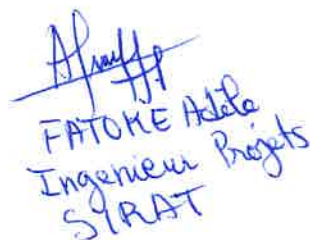 FATOKE Adèle
Ingenieur Projets
SIRAT